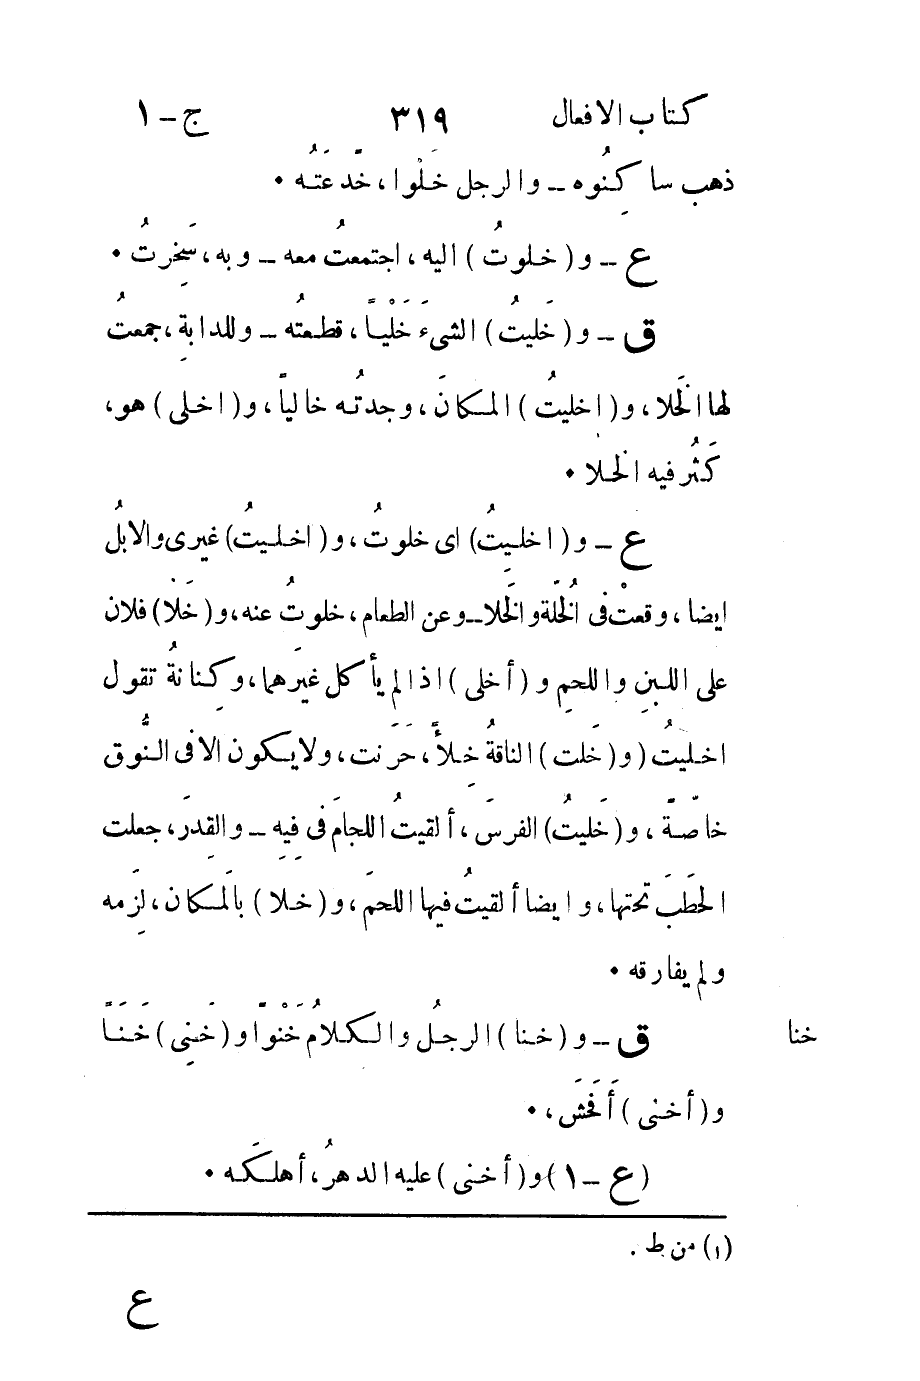 كتاب الافعال ٣١٩ ج - ١
ذهب ساكِنُوه - والرجل خَلْوا، خَدَّعَتُه •
ع - و (خلوتُ) اليه، اجتمعتُ معه - وبه، سَخِرتُ •
ق - و (خَليتُ) الشىءَ خَلْياً، قطعتُه - وللدابةِ، جمعتُ
لها الخَلا، و (اخليتُ) المكانَ، وجدتُه خالياً، و (اخلى) هو،
كَثُر فيه الخلا •
ع - و (اخليتُ) اى خلوتُ، و (اخليتُ) غيرى والابلُ
ايضا، وقعتْ فى الخُلّةِ والخَلا - وعن الطعام، خلوتُ عنه، و (خَلا) فلان
على اللبنِ واللحمِ و (أخلى) اذا لم يأكل غيرَهما، وكِنانةُ تقول
اخليتُ (و (خَلت) الناقةُ خِلأً، حَرَنت، ولا يكون الا فى النُّوق
خاصّةً، و (خَليتُ) الفرسَ، ألقيتُ اللجامَ فى فِيهِ - والقِدرَ، جعلت
الحَطَبَ تحتها، وايضا ألقيتُ فيها اللحمَ، و (خلا) بالمَكان، لَزِمه
ولم يفارقه •
خنا
ق - و (خنا) الرجلُ والكلامُ خَنْوًا و (خَنِى) خَنَاً
و (أخنى) أَفحَشَ، •
(ع - ١) و (أخنى) عليه الدهرُ، أهلكَه •
(١) من ط .
ع